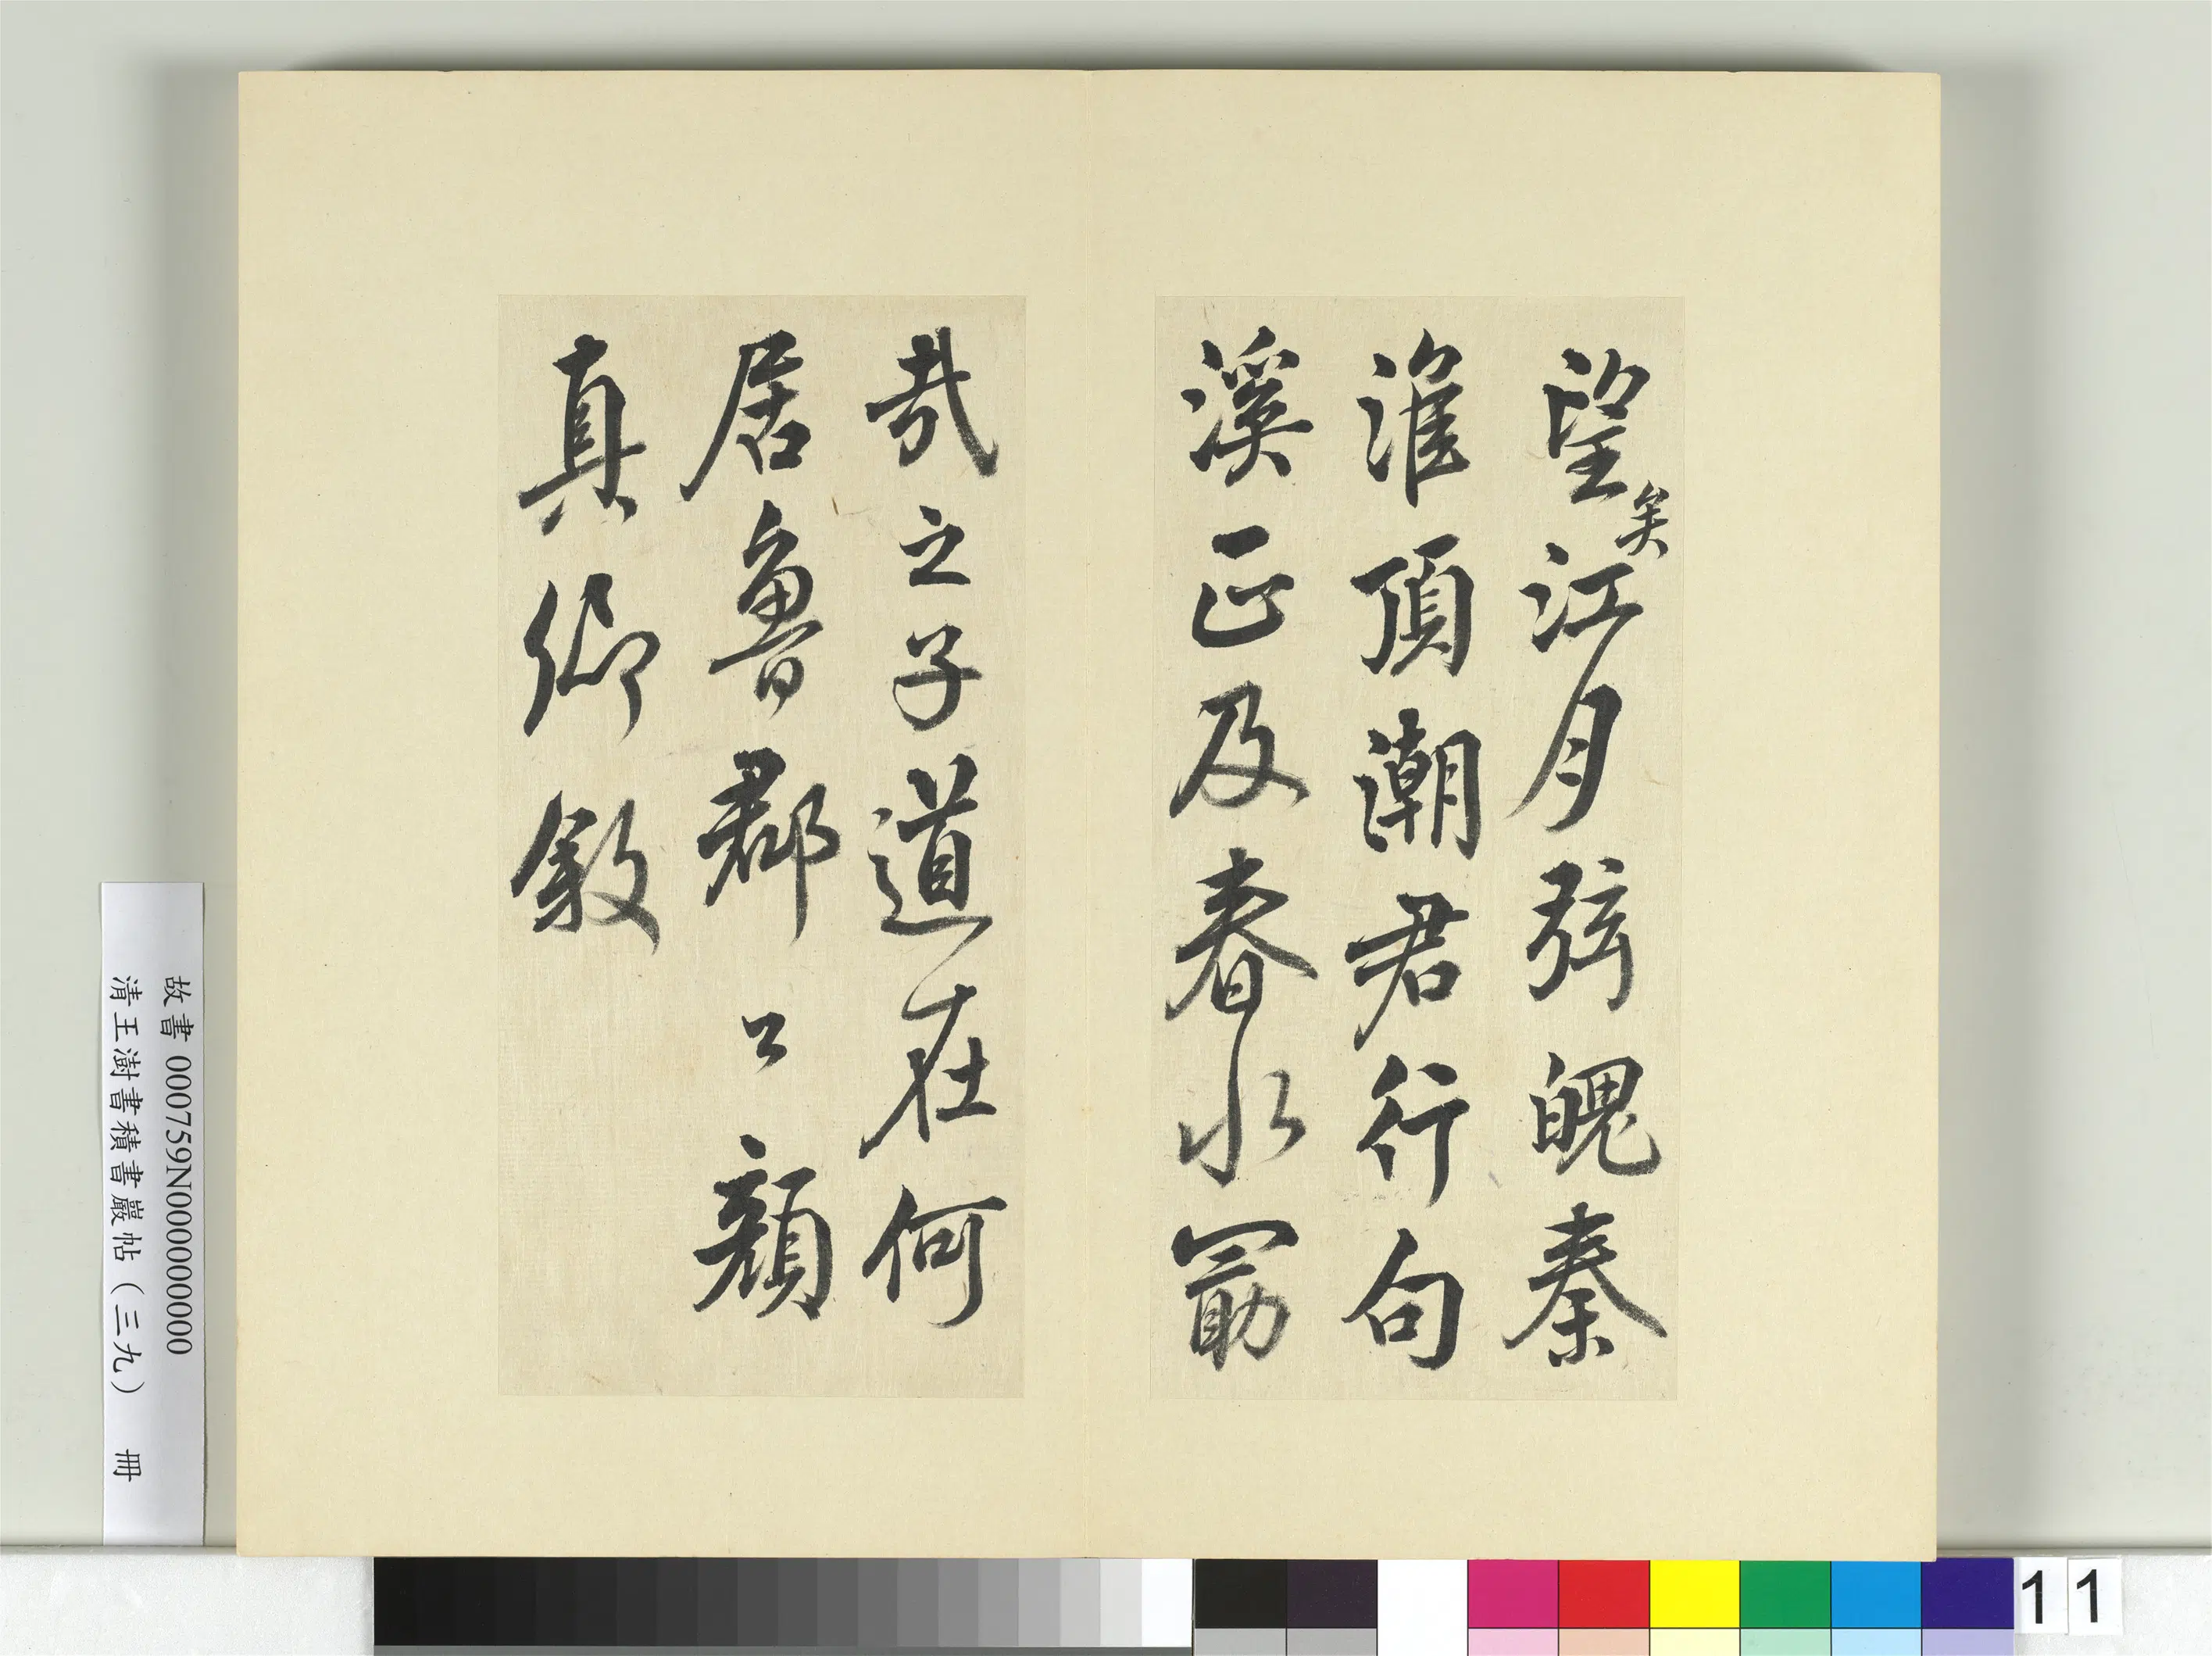 望矣江月弦魄秦
淮頂潮君行句
溪正及春水勗
哉之子道在何
居魯郡公顏
真卿敘
故書 000759N000000000
清王澍書積書巖帖（三九） 冊
11